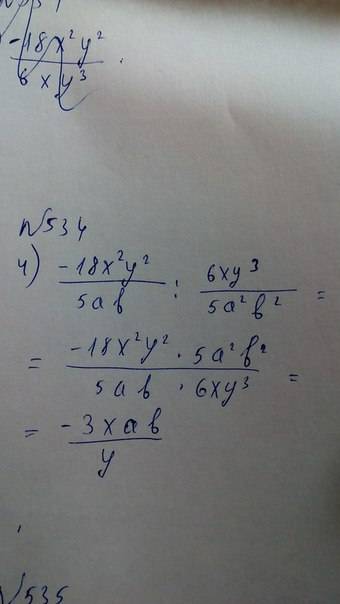 -18x²y²
6xy³
N534
4) -18x²y² / 5ab : 6xy³ / 5a²b² =
= -18x²y² · 5a²b² / 5ab · 6xy³ =
= -3xab / y
N535